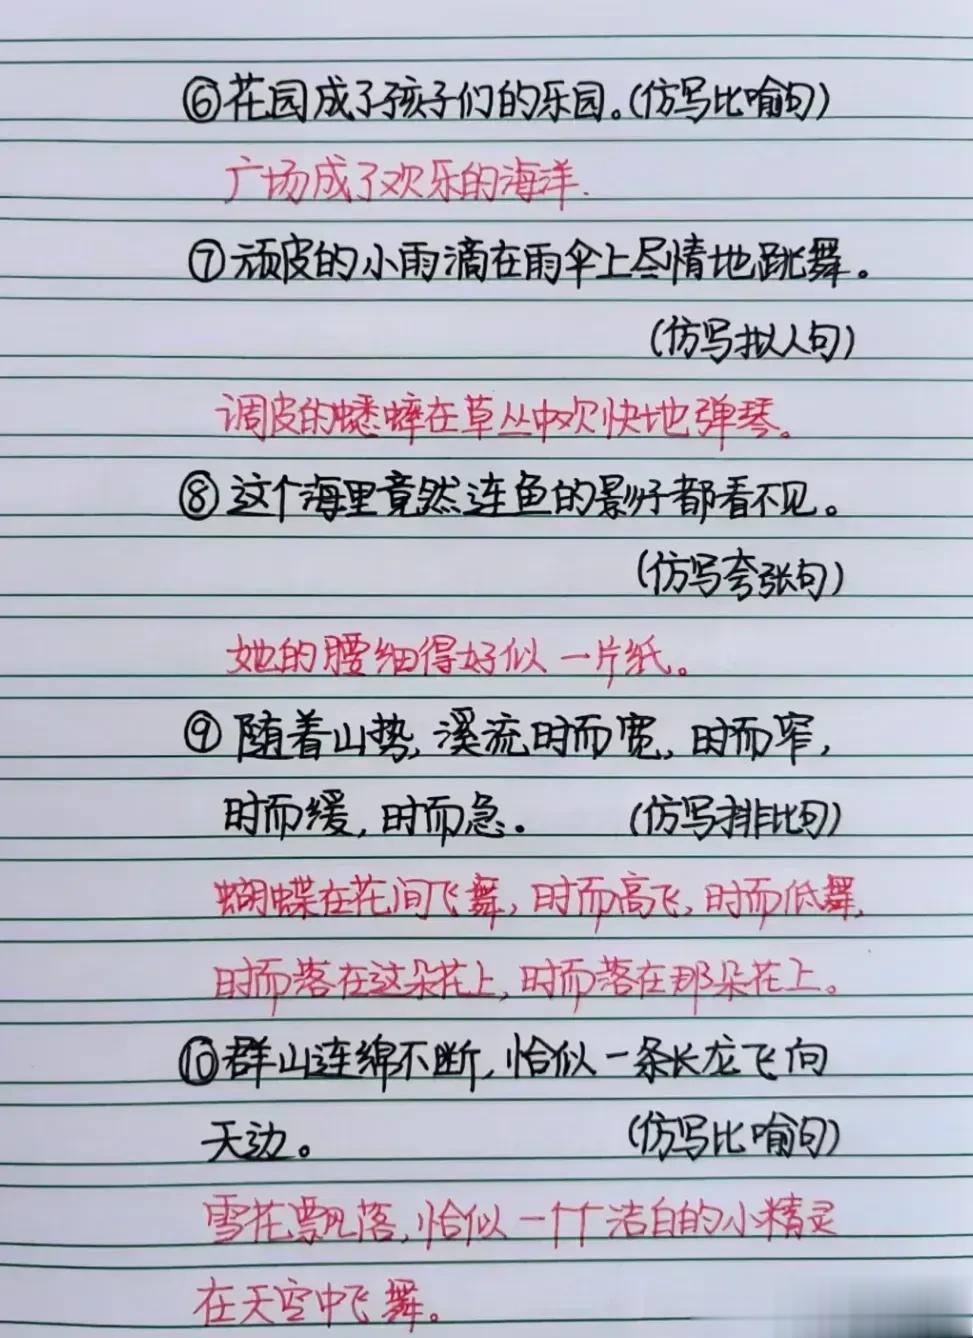 ⑥花园成了孩子们的乐园。(仿写比喻句)
广场成了欢乐的海洋.
⑦顽皮的小雨滴在雨伞上尽情地跳舞。
(仿写拟人句)
调皮的蟋蟀在草丛中欢快地弹琴。
⑧这个海里竟然连鱼的影子都看不见。
(仿写夸张句)
她的腰细得好似一片纸。
⑨随着山势,溪流时而宽,时而窄,
时而缓,时而急。 (仿写排比句)
蝴蝶在花间飞舞,时而高飞,时而低舞,
时而落在这朵花上,时而落在那朵花上。
⑩群山连绵不断,恰似一条长龙飞向
天边。 (仿写比喻句)
雪花飘落,恰似一个个洁白的小精灵
在天空中飞舞。